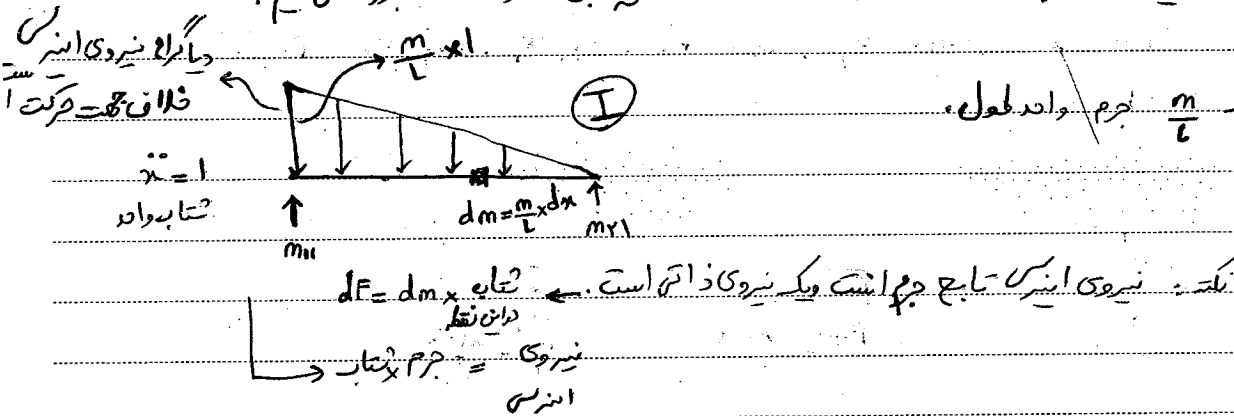 دیاگرام نیروی اینرسی
خلاف جهت حرکت است
m/L × 1
I
m/L جرم واحد طول.
ẍ = 1
شتاب واحد
m11
dm = m/L × dx
m21
نکته: نیروی اینرسی تابع جرم است ویک نیروی ذاتی است. ← dF = dm × شتاب
دراین نقطه
نیروی اینرسی = جرم × شتاب